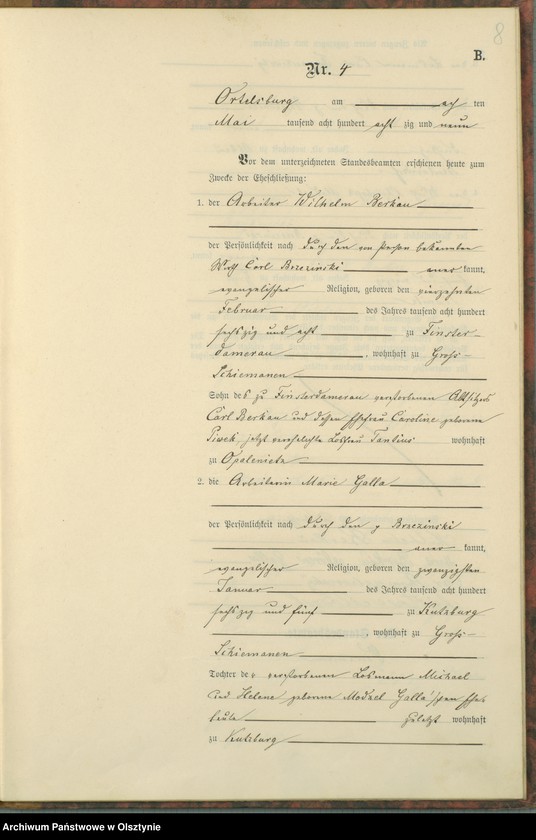 8
B.
Nr. 4
Ortelsburg am ach ten
Mai tausend acht hundert acht zig und neun
Vor dem unterzeichneten Standesbeamten erschienen heute zum
Zwecke der Eheschließung:
1. der Arbeiter Wilhelm Berkau
der Persönlichkeit nach durch den von Person bekannten
Wirth Carl Brzezinski aner kannt,
evangelischer Religion, geboren den vierzehnten
Februar des Jahres tausend acht hundert
sechszig und acht zu Finster-
damerau, wohnhaft zu Gross-
Schiemanen
Sohn des zu Finsterdamerau verstorbenen Altsitzers
Carl Berkau und dessen Ehefrau Caroline geborene
Piwek jetzt verehelichte Losfrau wohnhaft
zu Opalenietz
2. die Arbeiterin Marie Galla
der Persönlichkeit nach durch den p Brzezinski
aner kannt,
evangelischer Religion, geboren den zwanzigsten
Januar des Jahres tausend acht hundert
sechszig und fünf zu Kutzburg
, wohnhaft zu Gross-
Schiemanen
Tochter der verstorbenen Losmann Michael
und Helene geborene Modzel Galla'schen Ehe-
leute zuletzt wohnhaft
zu Kutzburg
Archiwum Państwowe w Olsztynie